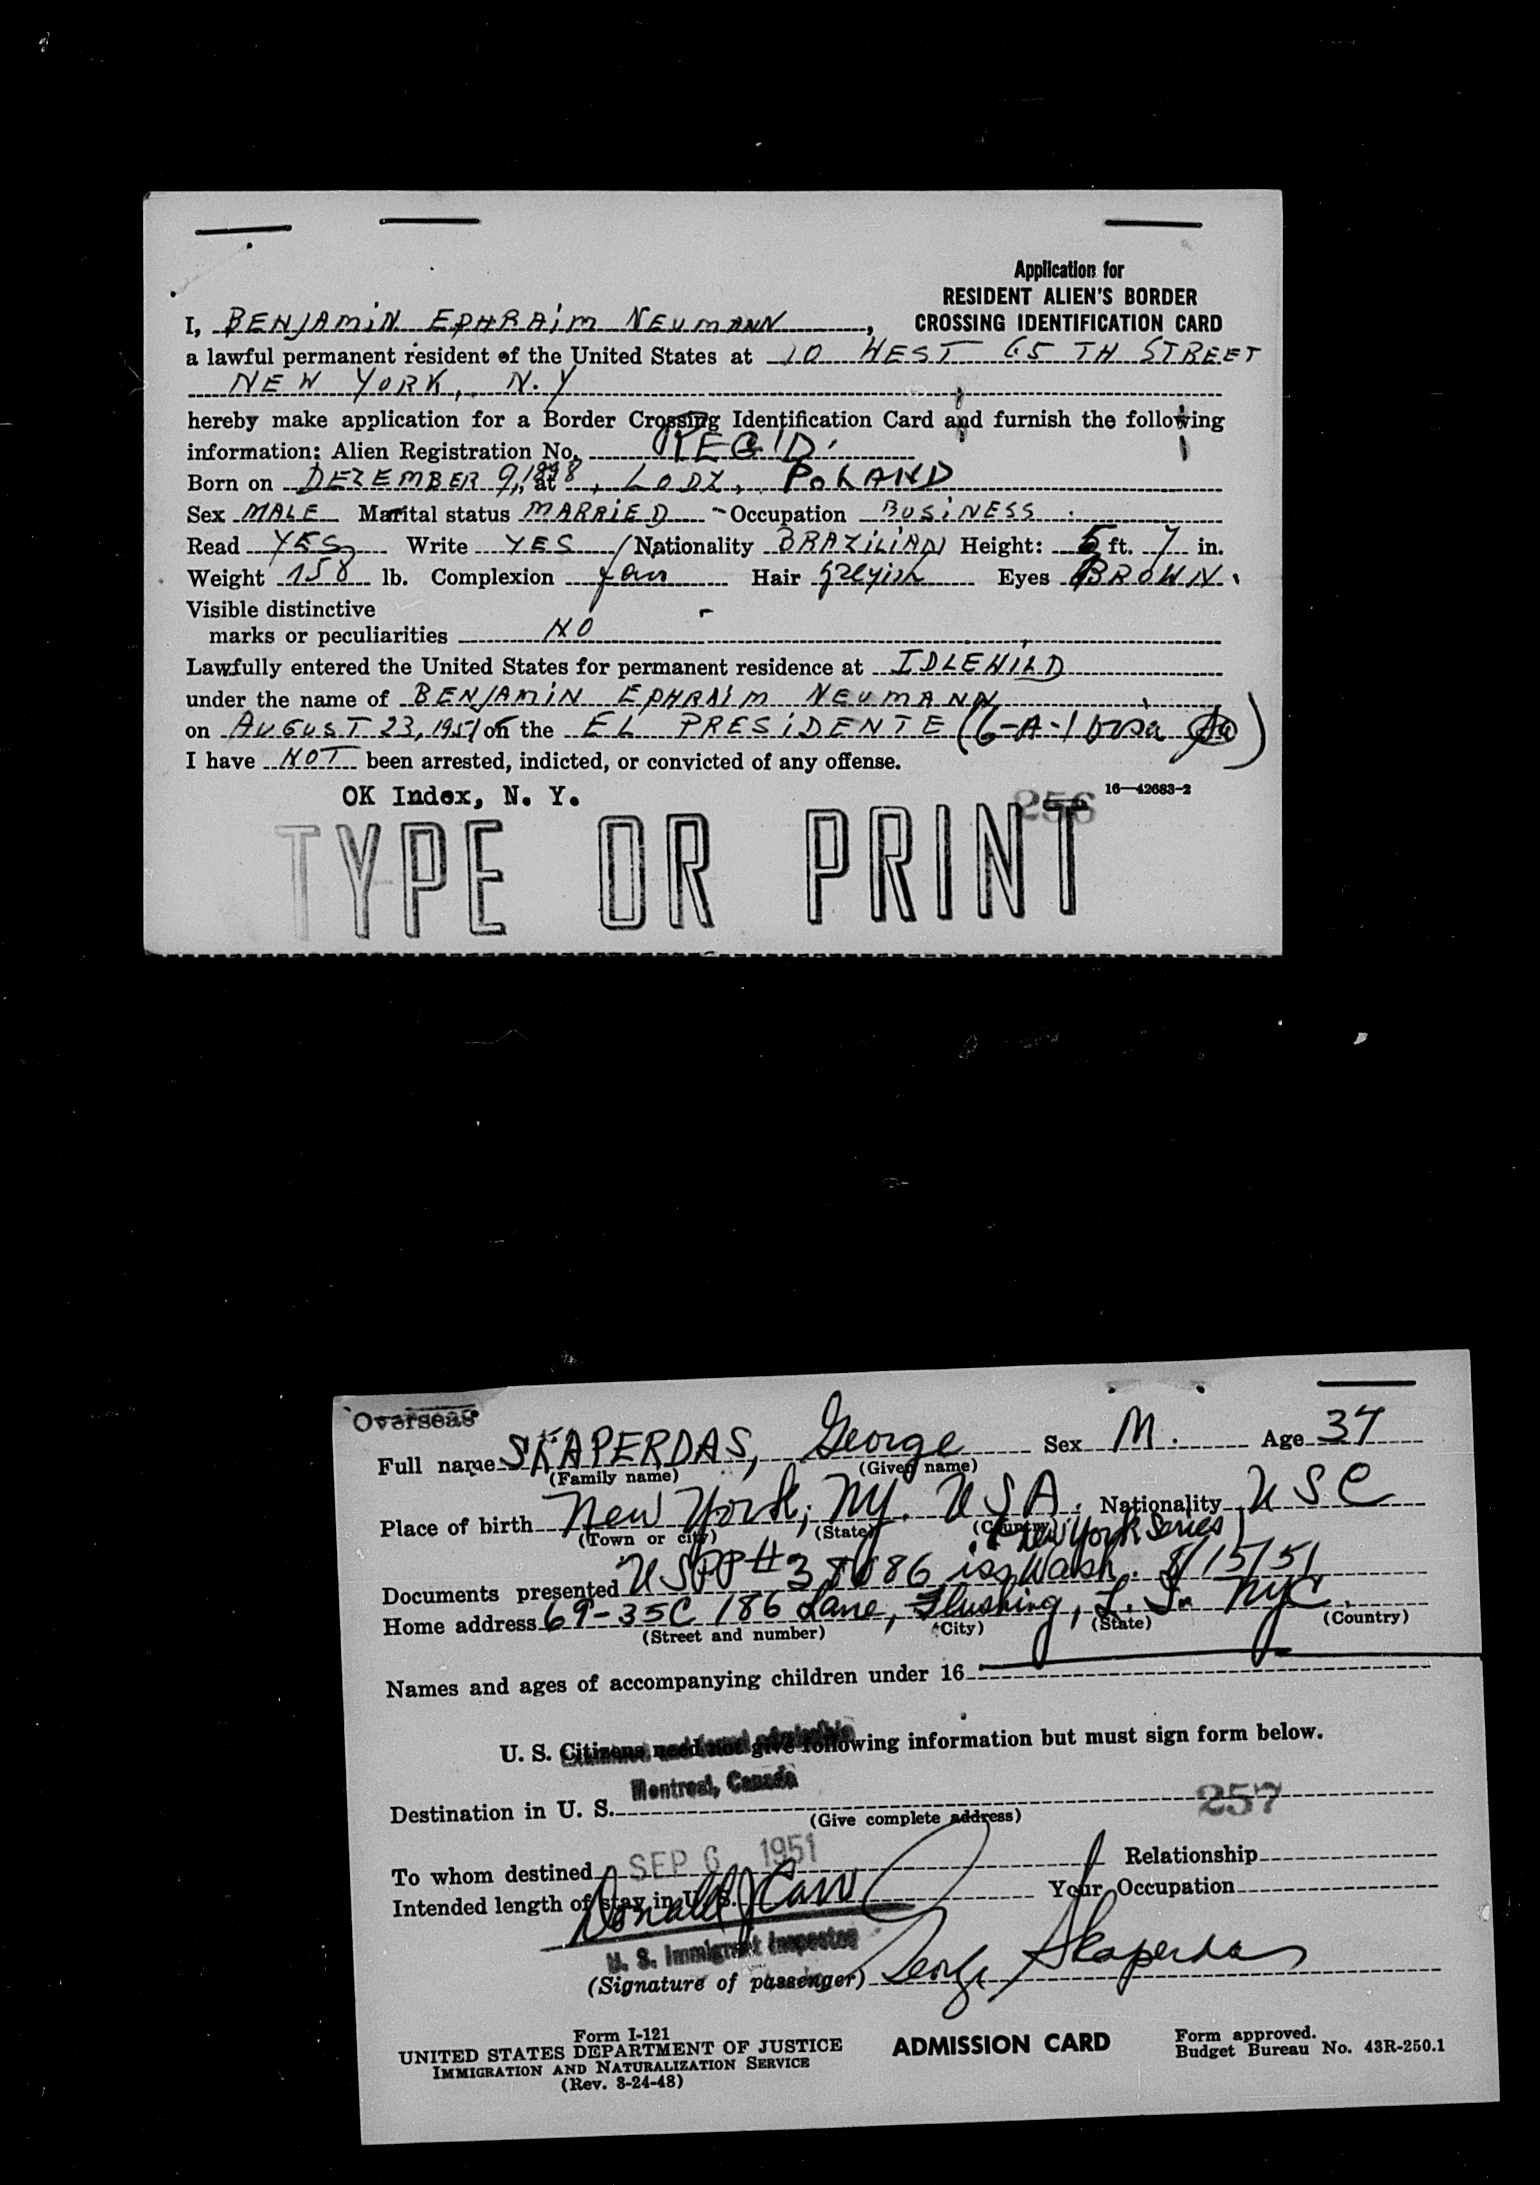 Application for
RESIDENT ALIEN'S BORDER
CROSSING IDENTIFICATION CARD
I, BENJAMIN EPHRAIM NEUMANN,
a lawful permanent resident of the United States at 10 WEST 65 TH STREET
NEW YORK, N.Y
hereby make application for a Border Crossing Identification Card and furnish the following
information: Alien Registration No.
Born on DEZEMBER 9, 1898, at LODZ, POLAND
Sex MALE Marital status MARRIED Occupation BUSINESS
Read YES Write YES Nationality BRAZILIAN Height: 5 ft. 7 in.
Weight 158 lb. Complexion fair Hair greyish Eyes BROWN
Visible distinctive
marks or peculiarities NO
Lawfully entered the United States for permanent residence at IDLEWILD
under the name of BENJAMIN EPHRAIM NEUMANN
on AUGUST 23, 1951 on the EL PRESIDENTE (6-A-1 visa)
I have NOT been arrested, indicted, or convicted of any offense.
OK Index, N. Y.
16—42683-2
256
TYPE OR PRINT
Overseas
Full name SKAPERDAS, George Sex M. Age 37
(Family name) (Given name)
Place of birth New York, NY. USA. Nationality USC
(Town or city) (State) (Country)
(New York Series)
Documents presented USPP# iss Wash. 8/15/51
Home address 69-35C 186 Lane, Flushing, L. I. NYC.
(Street and number) (City) (State) (Country)
Names and ages of accompanying children under 16
U. S. Citizens need not give following information but must sign form below.
Montreal, Canada
Destination in U. S.
(Give complete address)
257
To whom destined SEP 6 1951 Relationship
Intended length of stay in U. S. Your Occupation
Donald J Carr
U. S. Immigrant Inspector
(Signature of passenger) George Skaperdas
Form I-121
UNITED STATES DEPARTMENT OF JUSTICE
IMMIGRATION AND NATURALIZATION SERVICE
(Rev. 3-24-48)
ADMISSION CARD
Form approved.
Budget Bureau No. 43R-250.1